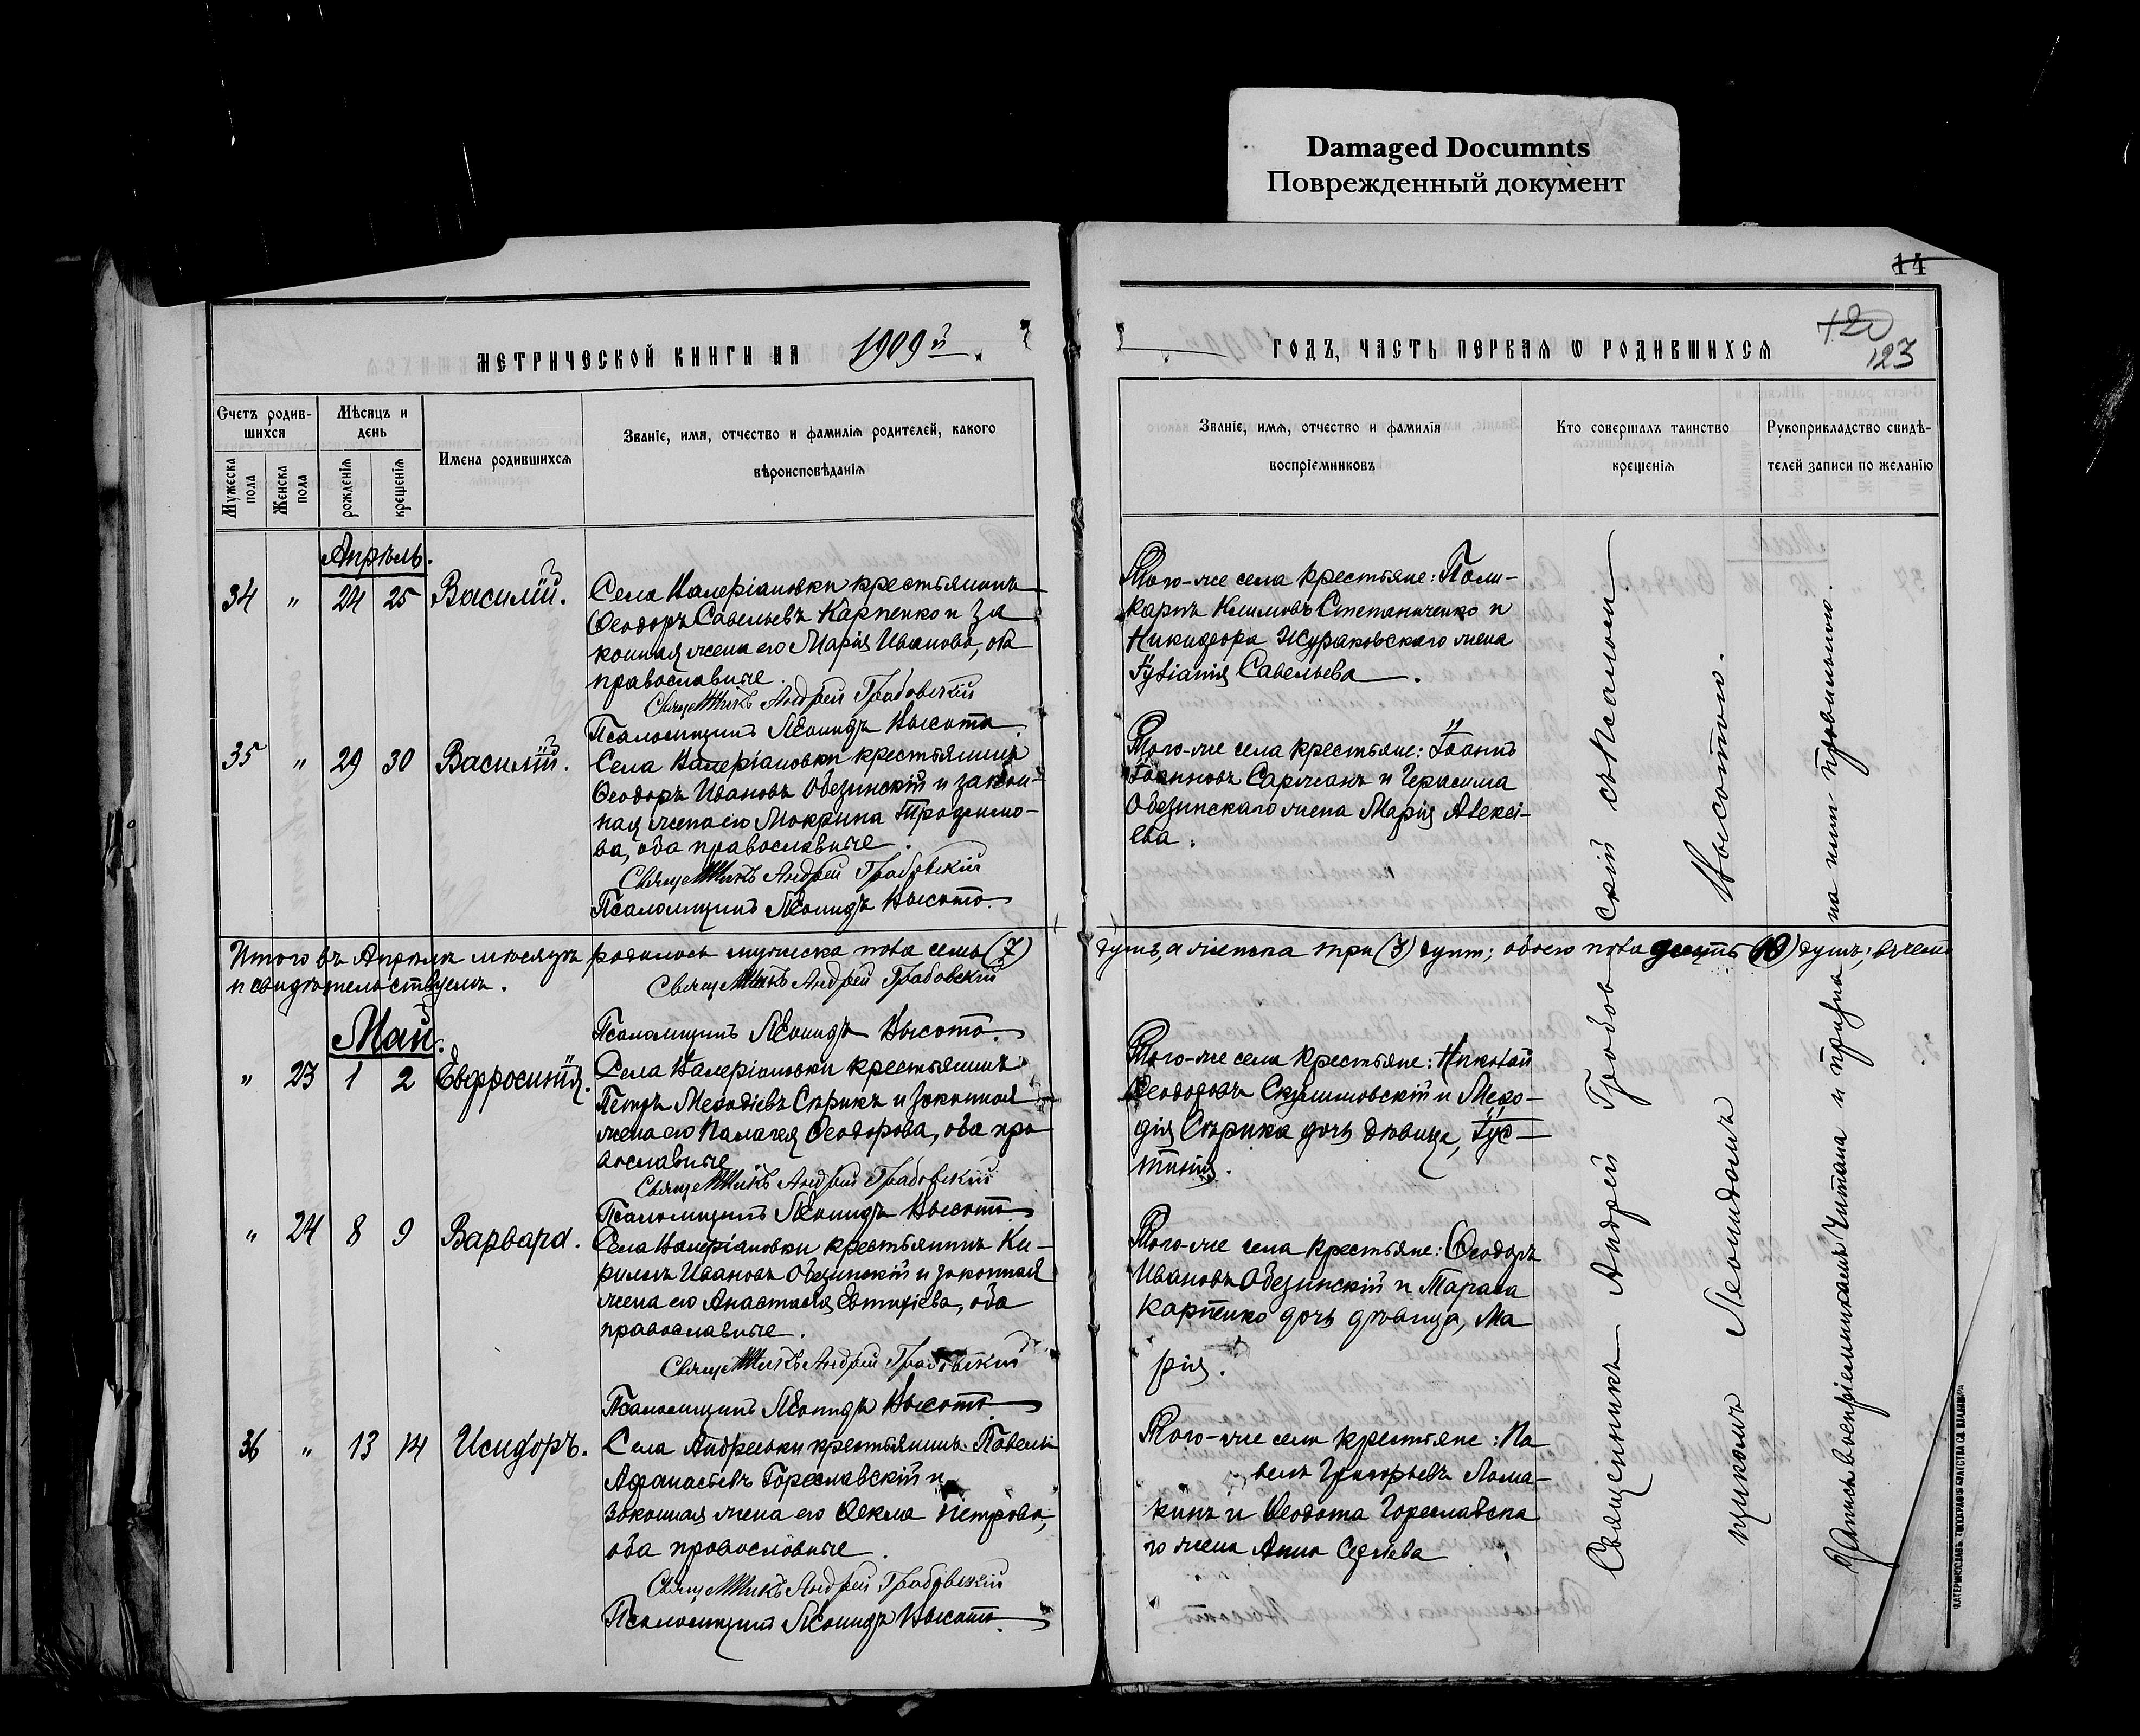 Damaged Documnts
Поврежденный документ
14
120
123
МЕТРИЧЕСКОЙ КНИГИ НА 1909й
ГОДЪ, ЧАСТЬ ПЕРВАЯ Ѡ РОДИВШИХСЯ
Счетъ родив-
шихся
Мѣсяцъ и
день
Имена родившихся
Званіе, имя, отчество и фамилія родителей, какого
вѣроисповѣданія
Мужеска
пола
Женска
пола
рожденія
крещенія
Званіе, имя, отчество и фамилія
воспріемниковъ
Кто совершалъ таинство
крещенія
Рукоприкладство свидѣ-
телей записи по желанію
Апрѣль.
34 " 24 25 Василій.
Села Валеріановки крестьянинъ
Ѳеодоръ Савельевъ Карпенко и за
конная жена его Марія Иванова, оба
православные.
Священникъ Андрей Грабовскій
Псаломщикъ Леонидъ Высота
Того-же села крестьяне: Поли-
карпъ Климовъ Степаниченко и
Никифора Жураковскаго жена
Савельева.
35 " 29 30 Василій.
Села Валеріановки крестьянинъ
Ѳеодоръ Ивановъ Обезинскій и закон-
ная жена его Мокрина Трофимо-
ва, оба православные.
Священникъ Андрей Грабовскій
Псаломщикъ Леонидъ Высота.
Того-же села крестьяне: Іоаннъ
Іоанновъ Саржанъ и Герасима
Обезинскаго жена Марія Алексі-
ева.
Итого въ Апрѣлѣ мѣсяцѣ родилось мужеска пола семь (7)
душъ, а женска три (3) душъ; обоего пола десять (10) душъ; въ чемъ
и свидѣтельствуемъ.
Священникъ Андрей Грабовскій
Псаломщикъ Леонидъ Высота.
Май.
" 23 1 2 Евфросинія.
Села Валеріановки крестьянинъ
Петръ Меѳодіевъ Сѣрикъ и законная
жена его Палагея Ѳеодорова, оба пра
вославные.
Священникъ Андрей Грабовскій
Псаломщикъ Леонидъ Высота.
Того-же села крестьяне: Николай
Ѳеодоровъ и Меѳо-
дія Сѣрика дочь дѣвица, Іус-
тинія.
" 24 8 9 Варвара.
Села Валеріановки крестьянинъ Ки-
риллъ Ивановъ Обезинскій и законная
жена его Анастасія Евтихіева, оба
православные.
Священникъ Андрей Грабовскій
Псаломщикъ Леонидъ Высота.
Того-же села крестьяне: Ѳеодоръ
Ивановъ Обезинскій и Тараса
Карпенко дочь дѣвица, Ма
рія.
36 " 13 14 Исидоръ.
Села Андреевки крестьянинъ Павелъ
Аѳанасьевъ Гореславскій и
законная жена его Ѳекла Петрова,
оба православные.
Священникъ Андрей Грабовскій
Псаломщикъ Леонидъ Высота.
Того-же села крестьяне: Па
велъ Григорьевъ Лома-
кинъ и Ѳеодота Гореславска
го жена Анна Сергіева
Священникъ Андрей Грабовскій съ псалом-
щикомъ Леонидомъ Высотою.
Запись воспріемникамъ читана и признана ими правильною.